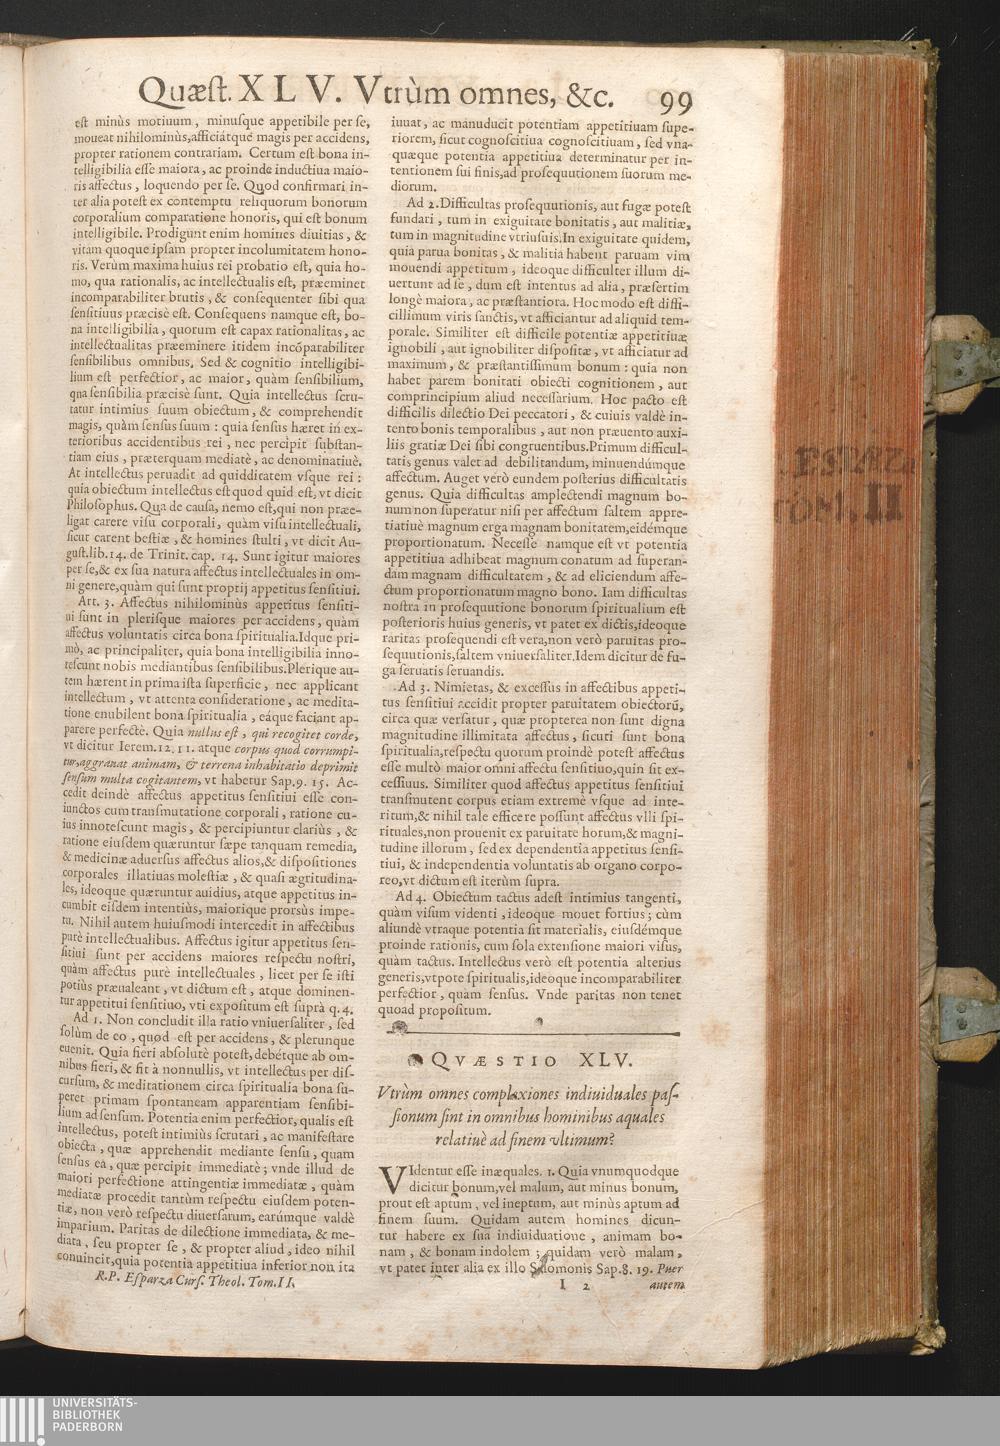 Quæst. XLV. Vtrùm omnes, &c. 99
est minùs motiuum, minusque appetibile per se,
moueat nihilominùs,afficiátque magis per accidens,
propter rationem contrariam. Certum est bona in-
telligibilia esse maiora, ac proinde inductiua maio-
ris affectus, loquendo per se. Quod confirmari in-
ter alia potest ex contemptu reliquorum bonorum
corporalium comparatione honoris, qui est bonum
intelligibile. Prodigunt enim homines diuitias, &
vitam quoque ipsam propter incolumitatem hono-
ris. Verùm maxima huius rei probatio est, quia ho-
mo, qua rationalis, ac intellectualis est, præeminet
incomparabiliter brutis, & consequenter sibi qua
sensitiuus præcisè est. Consequens namque est, bo-
na intelligibilia, quorum est capax rationalitas, ac
intellectualitas præeminere itidem incõparabiliter
sensibilibus omnibus. Sed & cognitio intelligibi-
lium est perfectior, ac maior, quàm sensibilium,
qna sensibilia præcisè sunt. Quia intellectus scru-
tatur intimius suum obiectum, & comprehendit
magis, quàm sensus suum : quia sensus hæret in ex-
terioribus accidentibus rei, nec percipit substan-
tiam eius, præterquam mediatè, ac denominatiuè.
At intellectus peruadit ad quidditatem vsque rei :
quia obiectum intellectus est quod quid est, vt dicit
Philosophus. Qua de causa, nemo est,qui non præe-
ligat carere visu corporali, quàm visu intellectuali,
sicut carent bestiæ, & homines stulti, vt dicit Au-
gust.lib.14. de Trinit. cap. 14. Sunt igitur maiores
per se,& ex sua natura affectus intellectuales in om-
ni genere,quàm qui sunt proprij appetitus sensitiui.
Art. 3. Affectus nihilominùs appetitus sensiti-
ui sunt in plerisque maiores per accidens, quàm
affectus voluntatis circa bona spiritualia.Idque pri-
mò, ac principaliter, quia bona intelligibilia inno-
tescunt nobis mediantibus sensibilibus.Plerique au-
tem hærent in prima ista superficie, nec applicant
intellectum, vt attenta consideratione, ac medita-
tione enubilent bona spiritualia, eáque faciant ap-
parere perfectè. Quia nullus est, qui recogitet corde,
vt dicitur Ierem.12.11. atque corpus quod corrumpi-
tur,aggrauat animam, & terrena inhabitatio deprimit
sensum multa cogitantem, vt habetur Sap.9. 15. Ac-
cedit deindè affectus appetitus sensitiui esse con-
iunctos cum transmutatione corporali, ratione cu-
ius innotescunt magis, & percipiuntur clariùs, &
ratione eiusdem quæruntur sæpe tanquam remedia,
& medicinæ aduersus affectus alios,& dispositiones
corporales illatiuas molestiæ, & quasi ægritudina-
les, ideoque quæruntur auidius, atque appetitus in-
cumbit eisdem intentiùs, maiorique prorsùs impe-
tu. Nihil autem huiusmodi intercedit in affectibus
purè intellectualibus. Affectus igitur appetitus sen-
sitiui sunt per accidens maiores respectu nostri,
quàm affectus purè intellectuales, licet per se isti
potiùs præualeant, vt dictum est, atque dominen-
tur appetitui sensitiuo, vti expositum est suprà q.4.
Ad 1. Non concludit illa ratio vniuersaliter, sed
solùm de eo, quod est per accidens, & plerunque
euenit. Quia fieri absolutè potest,debétque ab om-
nibus fieri, & fit à nonnullis, vt intellectus per dis-
cursum, & meditationem circa spiritualia bona su-
peret primam spontaneam apparentiam sensibi-
lium ad sensum. Potentia enim perfectior, qualis est
intellectus, potest intimiùs scrutari, ac manifestare
obiecta, quæ apprehendit mediante sensu, quam
sensus ea, quæ percipit immediatè; vnde illud de
maiori perfectione attingentiæ immediatæ, quàm
mediatæ procedit tantùm respectu eiusdem poten-
tiæ, non verò respectu diuersarum, earúmque valdè
imparium. Paritas de dilectione immediata, & me-
diata, seu propter se, & propter aliud, ideo nihil
conuincit,quia potentia appetitiua inferior non ita
R.P. Esparza Curs. Theol. Tom.II.
iuuat, ac manuducit potentiam appetitiuam supe-
riorem, sicut cognoscitiua cognoscitiuam, sed vna-
quæque potentia appetitiua determinatur per in-
tentionem sui finis,ad prosequutionem suorum me-
diorum.
Ad 2.Difficultas prosequutionis, aut fugæ potest
fundari, tum in exiguitate bonitatis, aut malitiæ,
tum in magnitudine vtriusuis.In exiguitate quidem,
quia parua bonitas, & malitia habent paruam vim
mouendi appetitum, ideoque difficulter illum di-
uertunt ad se, dum est intentus ad alia, præsertim
longè maiora, ac præstantiora. Hoc modo est diffi-
cillimum viris sanctis, vt afficiantur ad aliquid tem-
porale. Similiter est difficile potentiæ appetitiuæ
ignobili, aut ignobiliter dispositæ, vt afficiatur ad
maximum, & præstantissimum bonum : quia non
habet parem bonitati obiecti cognitionem, aut
comprincipium aliud necessarium. Hoc pacto est
difficilis dilectio Dei peccatori, & cuiuis valdè in-
tento bonis temporalibus, aut non præuento auxi-
liis gratiæ Dei sibi congruentibus.Primum difficul-
tatis genus valet ad debilitandum, minuendúmque
affectum. Auget verò eundem posterius difficultatis
genus. Quia difficultas amplectendi magnum bo-
num non superatur nisi per affectum saltem appre-
tiatiuè magnum erga magnam bonitatem,eidémque
proportionatum. Necesse namque est vt potentia
appetitiua adhibeat magnum conatum ad superan-
dam magnam difficultatem, & ad eliciendum affe-
ctum proportionatum magno bono. Iam difficultas
nostra in prosequutione bonorum spiritualium est
posterioris huius generis, vt patet ex dictis,ideoque
raritas prosequendi est vera,non verò paruitas pro-
sequutionis,saltem vniuersaliter.Idem dicitur de fu-
ga seruatis seruandis.
Ad 3. Nimietas, & excessus in affectibus appeti-
tus sensitiui accidit propter paruitatem obiectorũ,
circa quæ versatur, quæ propterea non sunt digna
magnitudine illimitata affectus, sicuti sunt bona
spiritualia,respectu quorum proindè potest affectus
esse multò maior omni affectu sensitiuo,quin sit ex-
cessiuus. Similiter quod affectus appetitus sensitiui
transmutent corpus etiam extremè vsque ad inte-
ritum,& nihil tale efficere possunt affectus vlli spi-
rituales,non prouenit ex paruitate horum,& magni-
tudine illorum, sed ex dependentia appetitus sensi-
tiui, & independentia voluntatis ab organo corpo-
reo,vt dictum est iterùm supra.
Ad 4. Obiectum tactus adest intimius tangenti,
quàm visum videnti, ideoque mouet fortius; cùm
aliundè vtraque potentia sit materialis, eiusdémque
proinde rationis, cum sola extensione maiori visus,
quàm tactus. Intellectus verò est potentia alterius
generis,vtpote spiritualis,ideoque incomparabiliter
perfectior, quàm sensus. Vnde paritas non tenet
quoad propositum.
QVÆSTIO XLV.
Vtrùm omnes complexiones indiuiduales pas-
sionum sint in omnibus hominibus æquales
relatiuè ad finem vltimum?
VIdentur esse inæquales. 1. Quia vnumquodque
dicitur bonum,vel malum, aut minus bonum,
prout est aptum, vel ineptum, aut minùs aptum ad
finem suum. Quidam autem homines dicun-
tur habere ex sua indiuiduatione, animam bo-
nam, & bonam indolem ; quidam verò malam,
vt patet inter alia ex illo Salomonis Sap.8. 19. Puer
I 2 autem
II
UNIVERSITÄTS-
BIBLIOTHEK
PADERBORN